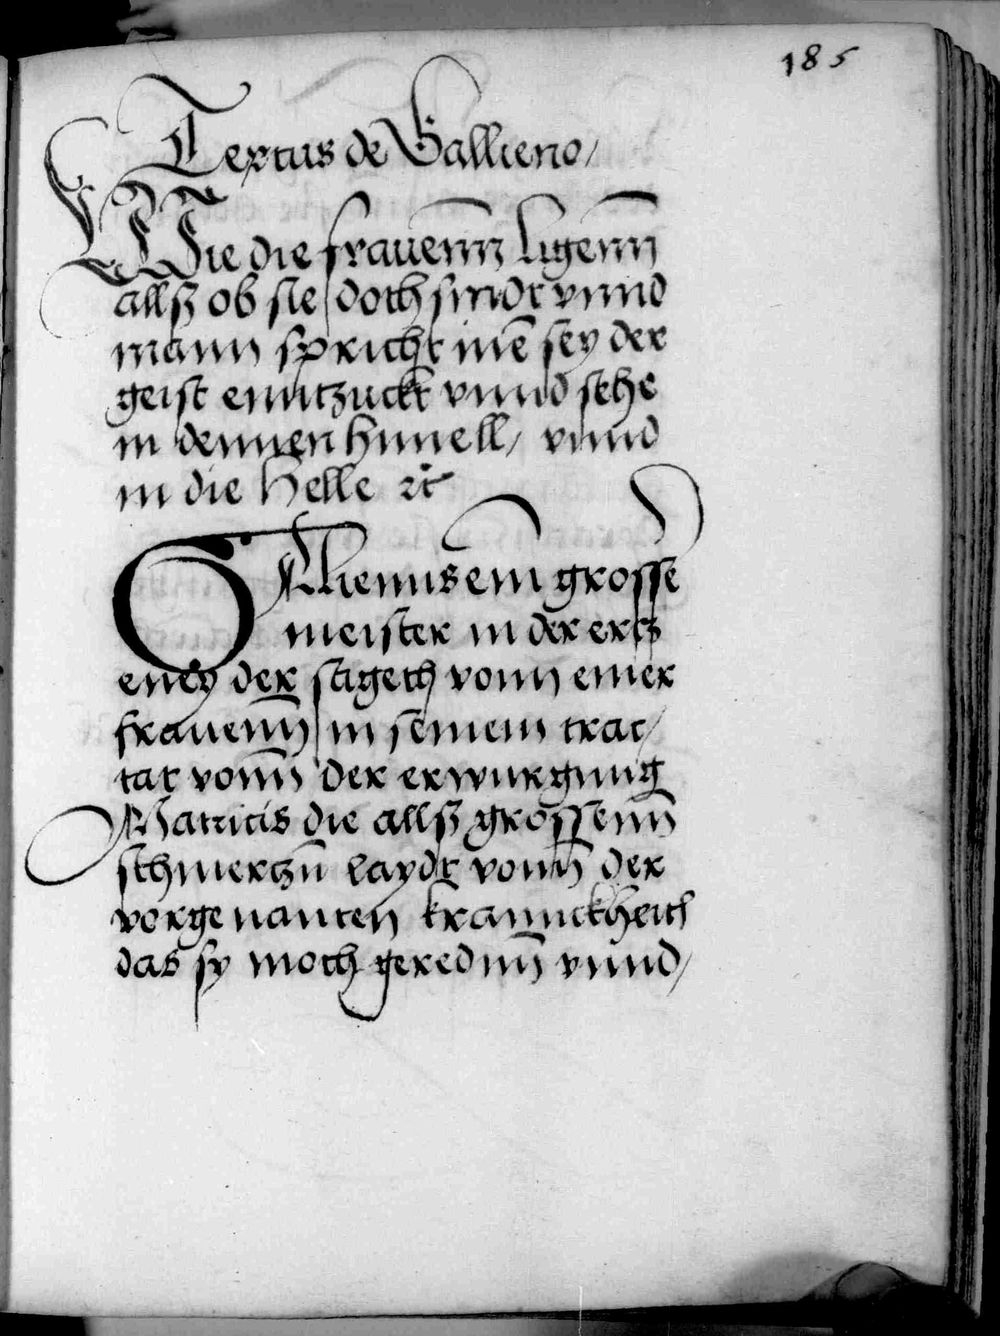 185
Textus de Gallieno /
Wie die frauenn ligenn
allß ob sie doch sindt vnnd
mann spricht inē sey der
geist enntzuckt vnnd sehe
in dennen himell / vnnd
in die Helle ꝛc
GAllienus ein grosse
meister in der ertz
eney der sageth vonn einer
frauenn in seinem trac /
tat vonn der erwurgung
Matricis die allß grossenn
schmertzn̄ laydt vonn der
vorgenanten krannckheith
das sy moch gerednn vnnd /